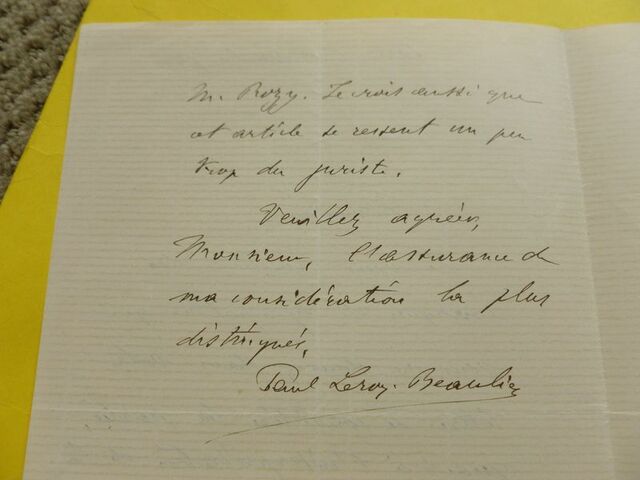 M. Rozy. Je crois aussi que
cet article se ressent un peu
trop du juriste.
Veuillez agréer,
Monsieur, l'assurance de
ma considération la plus
distinguée,
Paul Leroy-Beaulieu